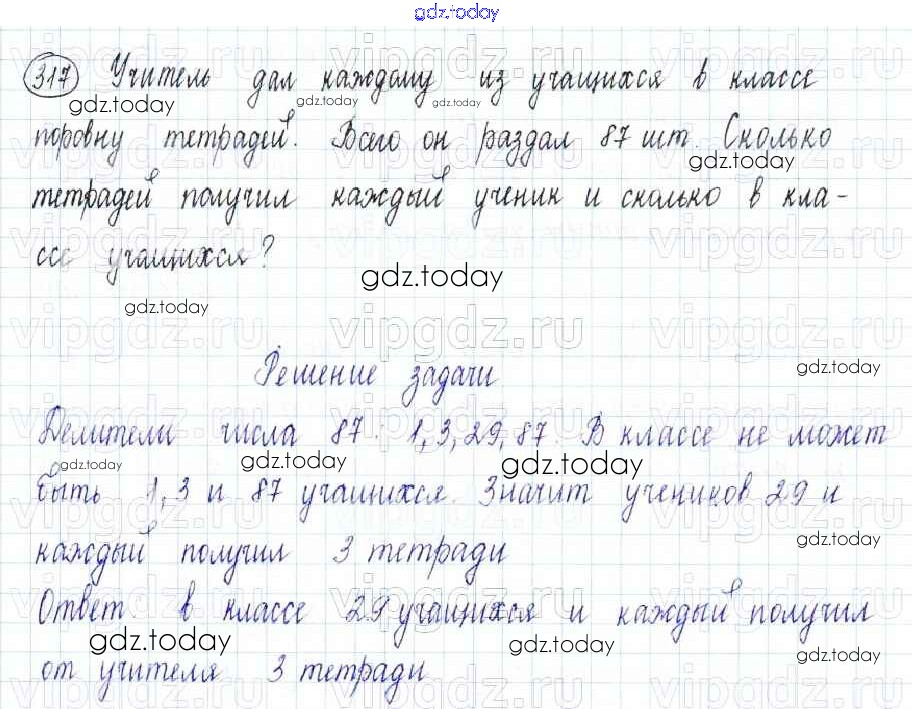 gdz.today
317 Учитель дал каждому из учащихся в классе
gdz.today gdz.today gdz.today
поровну тетрадей. Всего он раздал 87 шт. Сколько
gdz.today
тетрадей получил каждый ученик и сколько в кла-
ссе учащихся?
gdz.today
gdz.today
vipgdz.ru vipgdz.ru vipgdz.ru
Решение задачи
gdz.today
Делители числа 87: 1, 3, 29, 87. В классе не может
gdz.today gdz.today gdz.today
быть 1, 3 и 87 учащихся. Значит учеников 29 и
gdz.today
каждый получил 3 тетради
Ответ: в классе 29 учащихся и каждый получил
gdz.today gdz.today gdz.today
от учителя 3 тетради